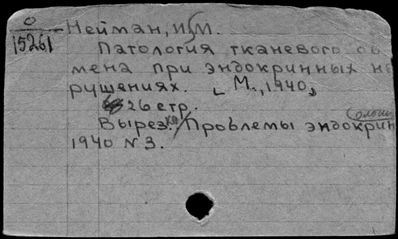 О
15261
Нейман, И. М.
Патология тканевого об
мена при эндокринных на
рушениях. М., 1940,
26 стр.
Вырез. Проблемы эндокрин
1940 N 3.